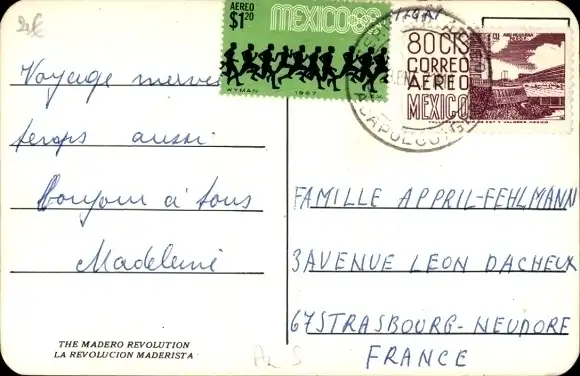 Voyage
temps aussi
Bonjour à tous
Madeleine
THE MADERO REVOLUTION
LA REVOLUCION MADERISTA
AEREO
$1.20
MEXICO 68
WYMAN 1967
80 CTS
CORREO
AEREO
MEXICO
ACAPULCO, GRO.
FAMILLE APPRIL-FEHLMANN
3 AVENUE LEON DACHEUX
67 STRASBOURG - NEUDORF
FRANCE